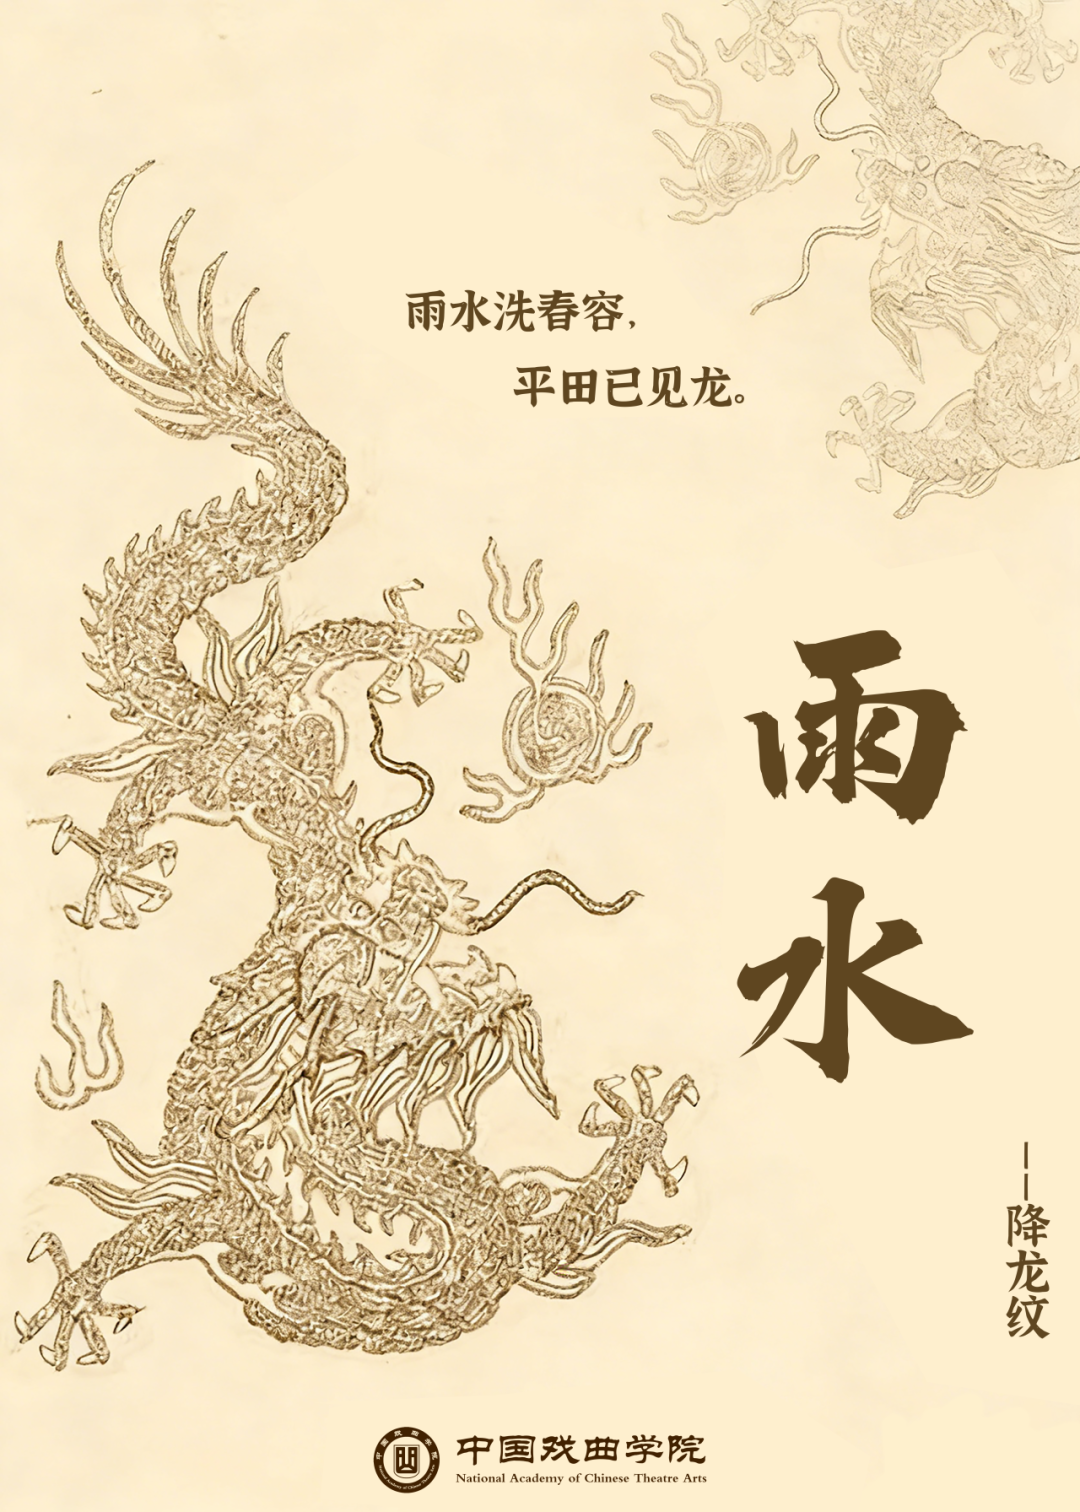 雨水洗春容，
平田已见龙。
雨水
——降龙纹
中国戏曲学院
National Academy of Chinese Theatre Arts